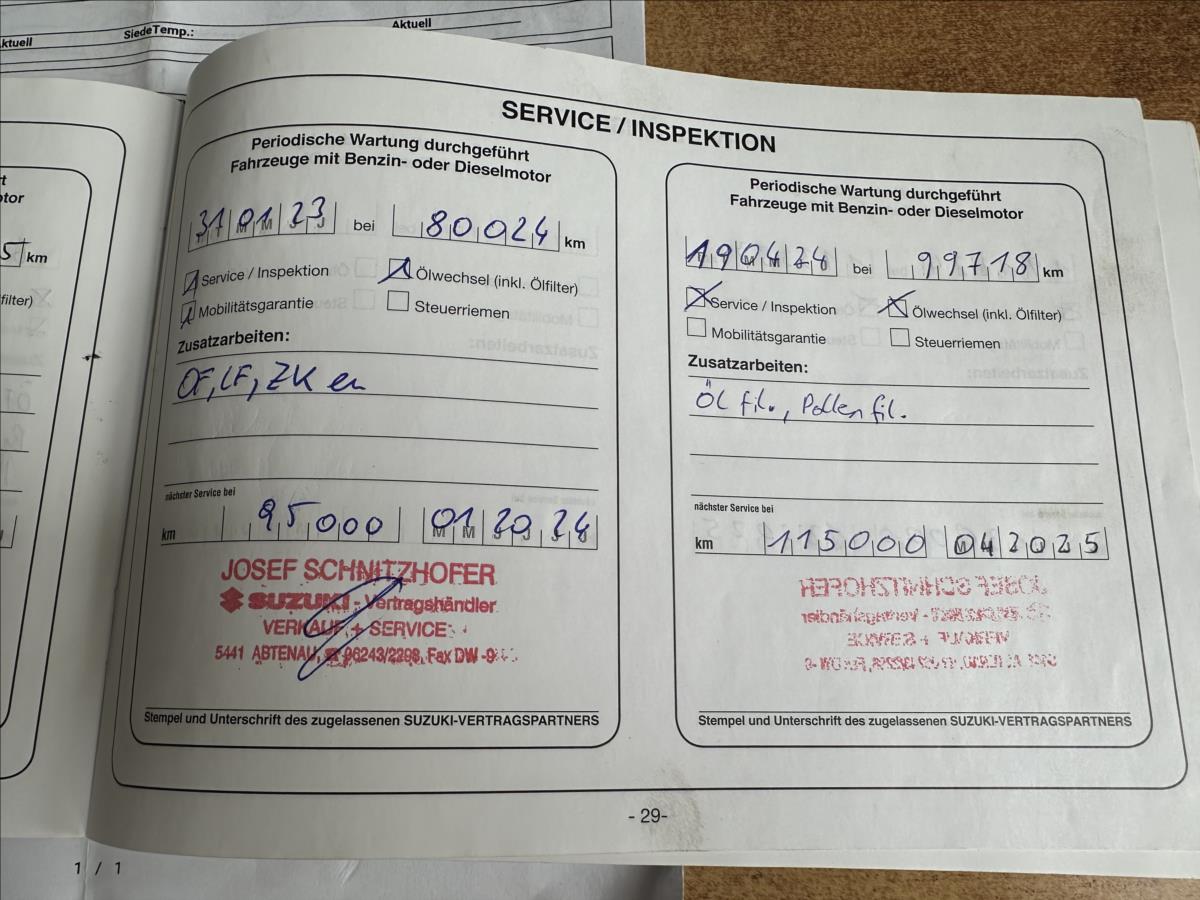 Aktuell
SiedeTemp.:
Aktuell
SERVICE / INSPEKTION
5 km
filter)
Periodische Wartung durchgeführt
Fahrzeuge mit Benzin- oder Dieselmotor
31 01 23 bei 80024 km
Service / Inspektion Ölwechsel (inkl. Ölfilter)
Mobilitätsgarantie Steuerriemen
Zusatzarbeiten:
ÖF, LF, ZK en
nächster Service bei
km 95000 01 2024
JOSEF SCHNITZHOFER
SUZUKI - Vertragshändler
VERKAUF + SERVICE
5441 ABTENAU, ☎ 06243/2298, Fax DW -9
Stempel und Unterschrift des zugelassenen SUZUKI-VERTRAGSPARTNERS
Periodische Wartung durchgeführt
Fahrzeuge mit Benzin- oder Dieselmotor
19 04 24 bei 99718 km
Service / Inspektion Ölwechsel (inkl. Ölfilter)
Mobilitätsgarantie Steuerriemen
Zusatzarbeiten:
Öl fil., Pollen fil.
nächster Service bei
km 115000 04 2025
JOSEF SCHNITZHOFER
Stempel und Unterschrift des zugelassenen SUZUKI-VERTRAGSPARTNERS
- 29-
1 / 1